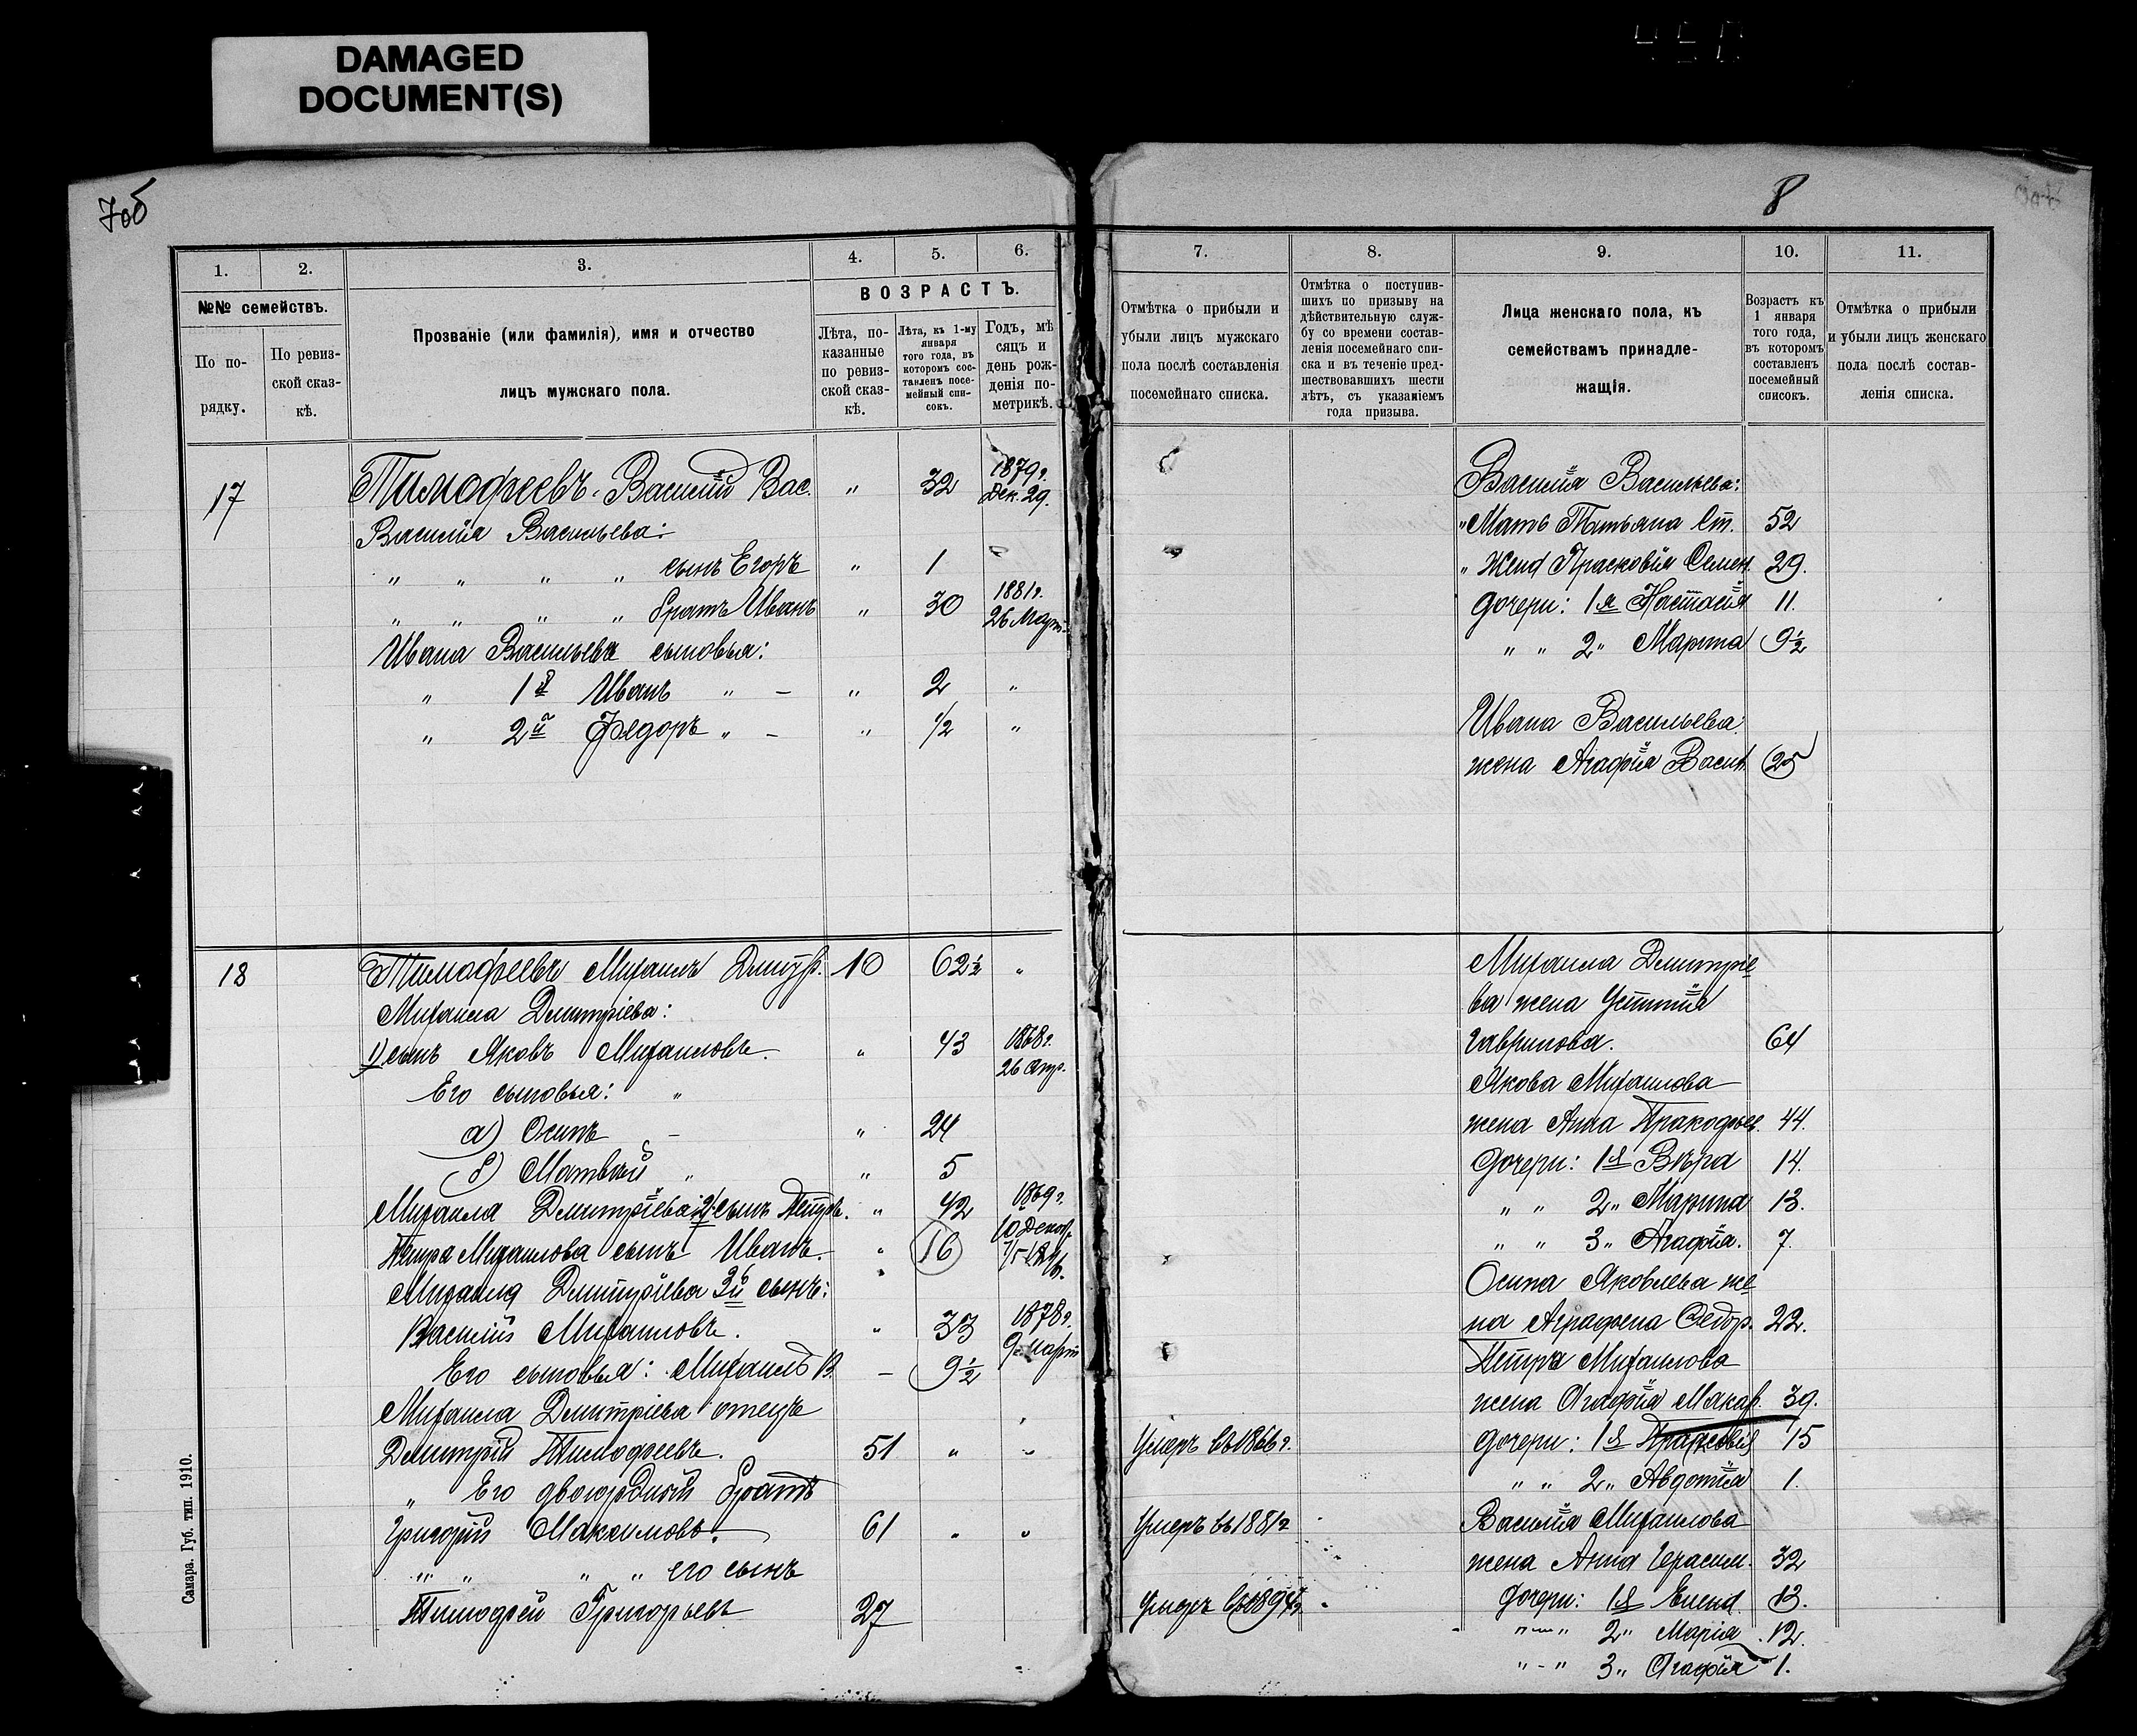 DAMAGED
DOCUMENT(S)
7об
8
1.
2.
3.
4.
5.
6.
№№ семействъ.
По по-
рядку.
По ревиз-
ской сказ-
кѣ.
Прозваніе (или фамилія), имя и отчество
лицъ мужскаго пола.
ВОЗРАСТЪ.
Лѣта, по-
казанные
по ревиз-
ской сказ-
кѣ.
Лѣта, къ 1-му
января
того года, въ
которомъ сос-
тавленъ посе-
мейный спи-
сокъ.
Годъ, мѣ
сяцъ и
день рож-
денія по-
метрикѣ.
7.
8.
9.
10.
11.
Отмѣтка о прибыли и
убыли лицъ мужскаго
пола послѣ составленія
посемейнаго списка.
Отмѣтка о поступив-
шихъ по призыву на
дѣйствительную служ-
бу со времени состав-
ленія посемейнаго спи-
ска и въ теченіе пред-
шествовавшихъ шести
лѣтъ, съ указаніемъ
года призыва.
Лица женскаго пола, къ
семействамъ принадле-
жащія.
Возрастъ къ
1 января
того года,
въ которомъ
составленъ
посемейный
списокъ.
Отмѣтка о прибыли
и убыли лицъ женскаго
пола послѣ состав-
ленія списка.
17 Тимофеевъ Василій Вас. " 32 1879г. Дек. 29.
Василія Васильева:
" " " " сынъ Егоръ " 1
" " " " братъ Иванъ " 30 1881г. 26 Март
Ивана Васильева сыновья:
" 1й Иванъ " - " 2 "
" 2й Федоръ " - " 1/2 "
Василія Васильева:
" Мать Татьяна Ст. 52
" Жена Прасковія Семен. 29.
Дочери: 1я Настасія 11.
" " 2" Марина 9 1/2
Ивана Васильева
жена Агафія Васил. 25
18 Тимофеевъ Михаилъ Дмитр. 10 62 1/2 "
Михаила Дмитріева:
1) сынъ Яковъ Михаиловъ. " 43 1868г. 26 Апр.
Его сыновья: "
а) Осипъ - " 24
б) Матвѣй " " 5
Михаила Дмитріева 2й сынъ Петръ. " 42 1869г. 10 Декаб.
Петра Михаилова сынъ Иванъ. - " 16
Михаила Дмитріева 3й сынъ:
Василій Михаиловъ. " 33 1878г. 9 март
Его сыновья: Михаилъ В. - 9 1/2
Михаила Дмитріева отецъ
Дмитрій Тимофеевъ. 51 " " Умеръ въ 1866г.
" Его двоюродный братъ
Григорій Максимовъ. 61 " " Умеръ въ 1881г
" " " " его сынъ
Тимофей Григорьевъ 27 Умеръ
Михаила Дмитріе
ва жена Устинія
Гаврилова. 64
Якова Михаилова
жена Анна Пракофьев. 44.
Дочери: 1я Вѣра 14.
" " 2" Марина 13.
" " 3" Агафія. 7.
Осипа Яковлева же
на Аграфена Федор. 22.
Петра Михаилова
жена Агафія Макар. 39.
Дочери: 1я Прасковія 15
" " 2" Авдотія 1.
Василія Михаилова
жена Анна Герасим. 32
Дочери: 1я Елена. 13.
" - " 2" Марія 12.
" - " 3" Агафія 1.
Самара. Губ. тип. 1910.